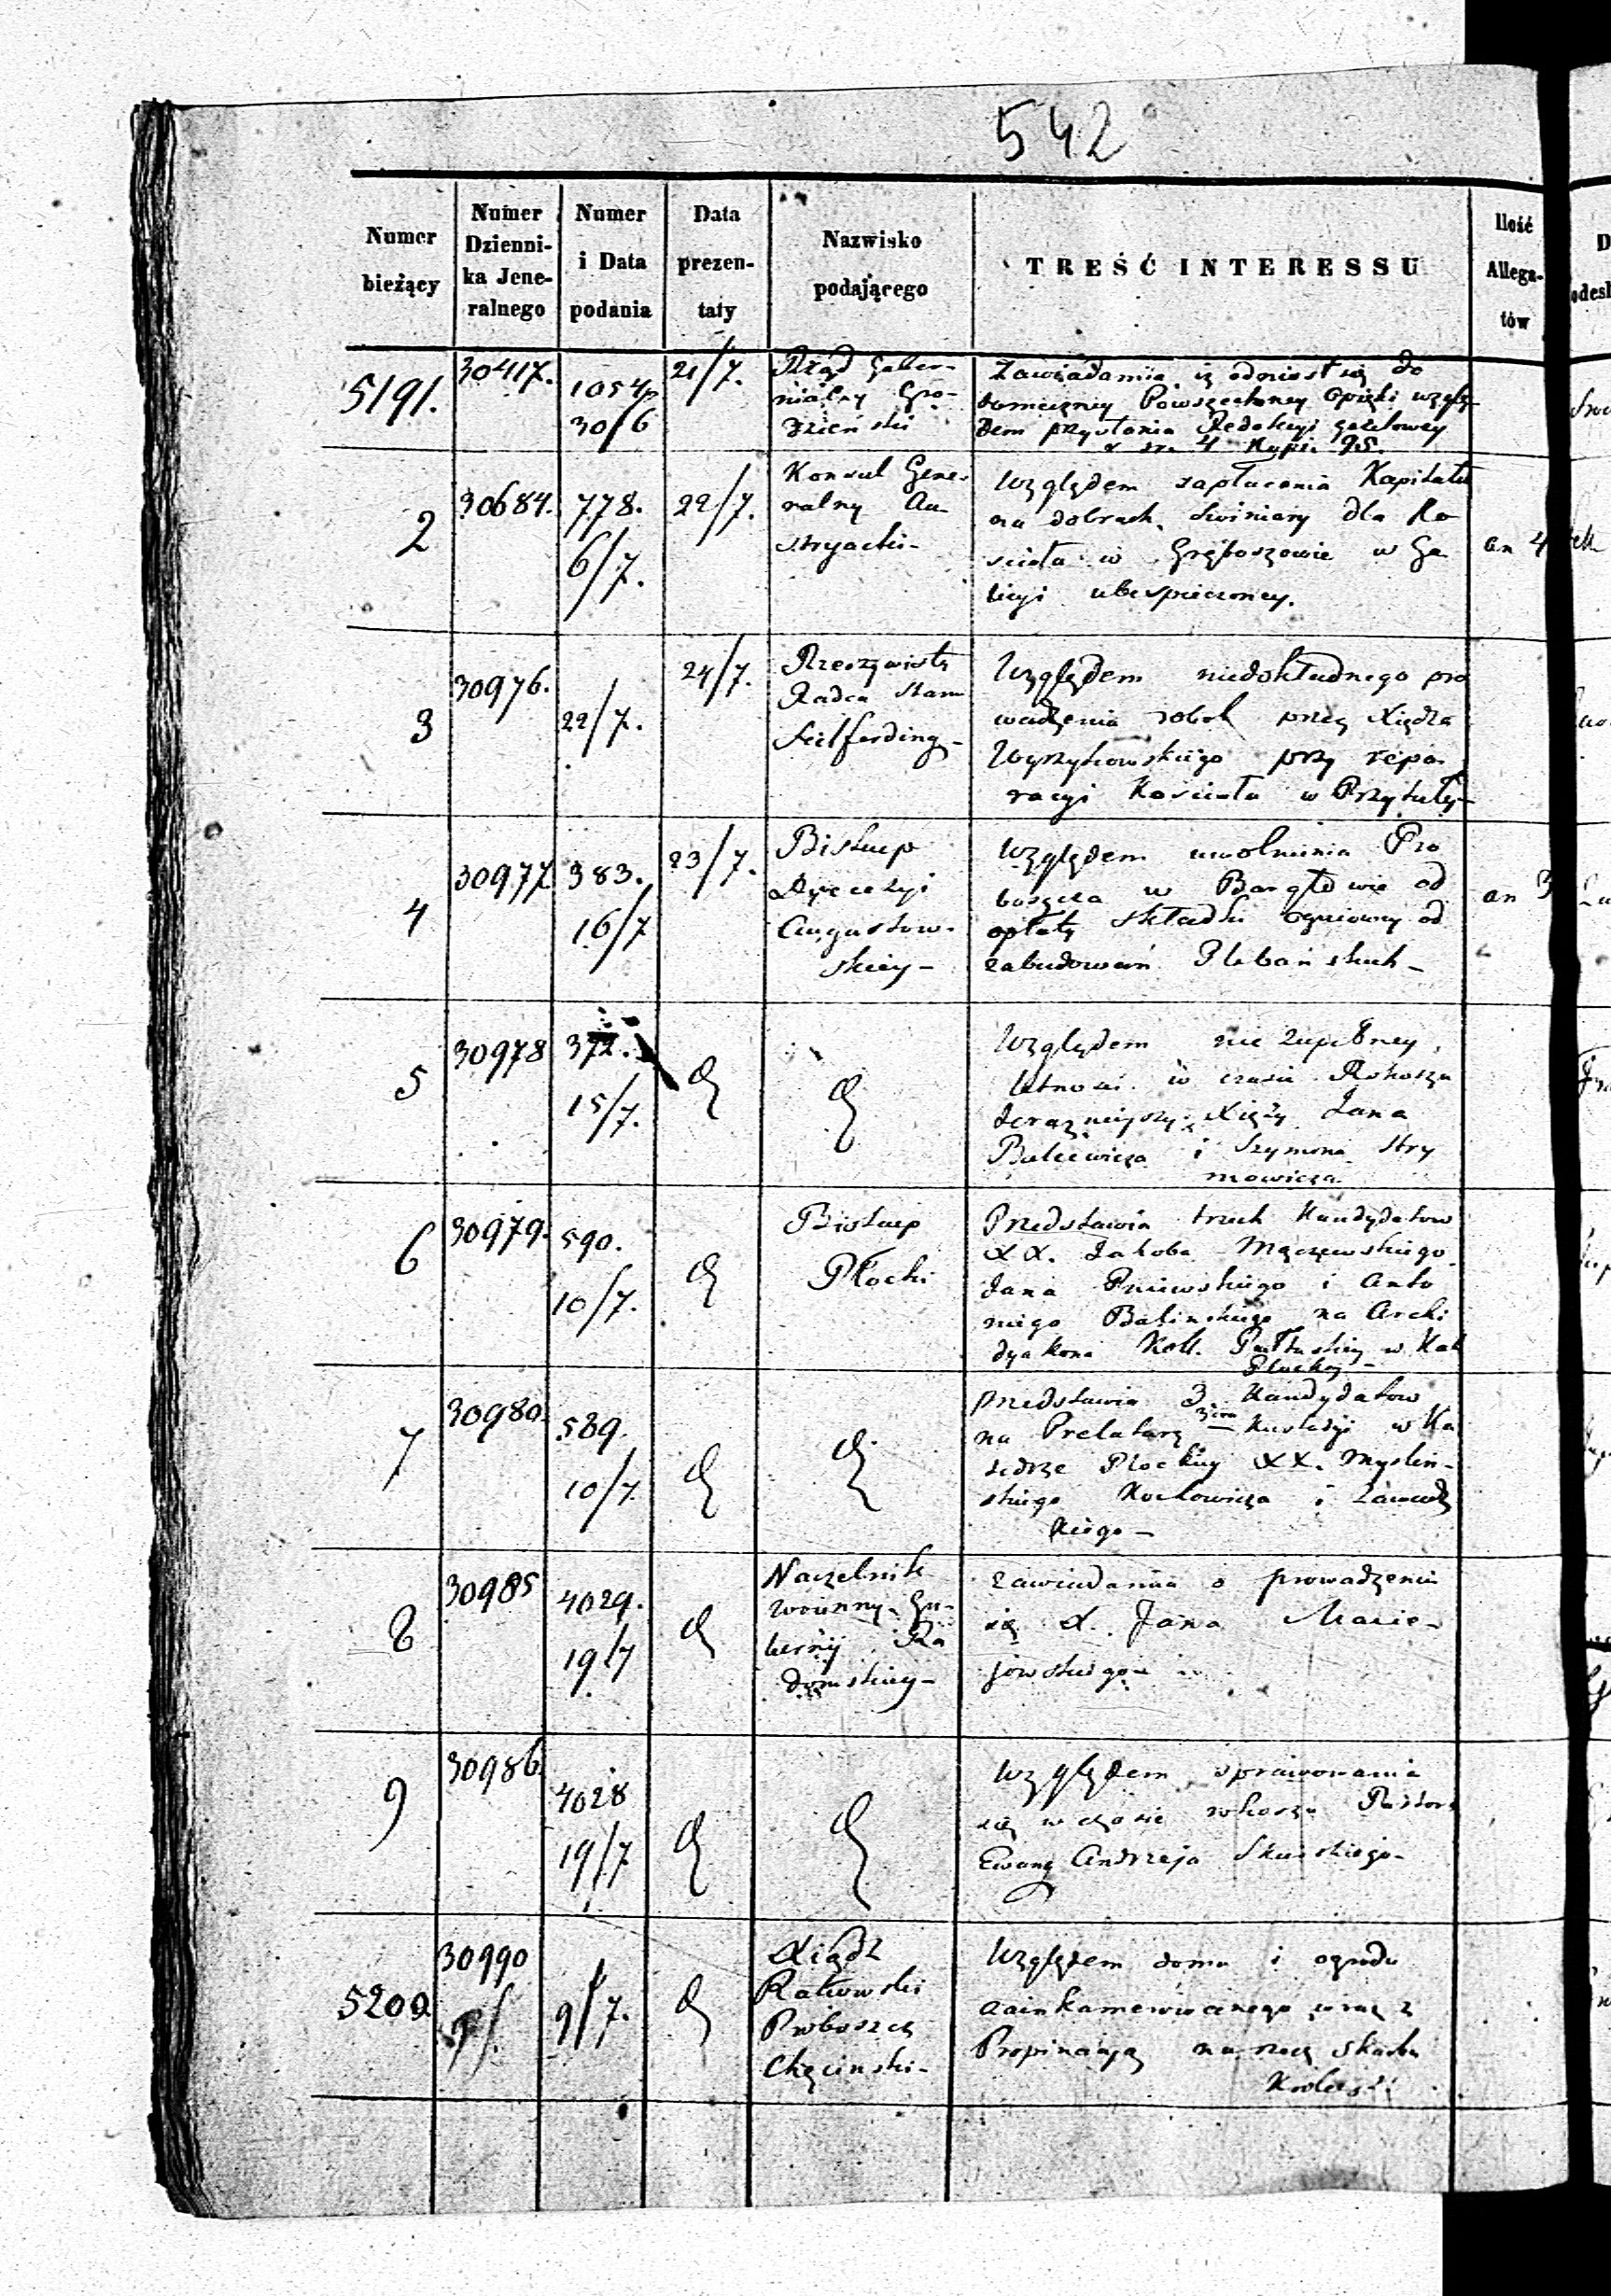 542
Numer bieżący
Numer Dzienni-ka Jene-ralnego
Numer i Data podania
Data prezen-taty
Nazwisko podającego
TREŚĆ INTERESSU
Ilość Allega-tów
5191.
30417.
1054
30/6
21/7.
Rząd Guber-
nialny Gro-
dzieński
Zawiadamia iż odniosł się do
Powszechney Opieki wzglę
dem przysłania Redakcyi gazetowey
r. sr. 4 Kop. 95.
2
30684.
778.
6/7.
22/7.
Konsul Gene-
ralny Au-
stryacki-
Względem zapłacenia Kapitału
na dobrach Swiniary dla Ko
scioła w Gręboszowie w Ga
licyi ubespieczoney.
an 4
3
30976.
22/7.
24/7.
Rzeczywisty
Radca Stanu
Hilferding-
Względem niedokładnego pro
wadzenia robot przez Xiędza
Wyrzykowskiego przy repa
racyi Kościoła w Przytuły-
4
30977
383.
16/7
23/7.
Biskup
Dyecezyi
Augustow-
skiey-
Względem uwolnienia Pro
boszcza w Bargłowie od
opłaty składki ogniowey od
zabudowań Plebańskich-
an 3
5
30978
372.
15/7.
Względem nie zupełney
letnosci w czasie Rokoszu
terazniejszy Xięży Jana
Butkiewicza i Szymona Stry
mowicza
6
30979.
590.
10/7.
Biskup
Płocki
Przedstawia trzech Kandydatow
XX. Jakoba Mączewskiego
Jana Pniewskiego i Anto
niego Balinskiego na Archi
dyakona Koll. Pułtuskiey w Kat
Płockiey-
7
30980.
589.
10/7.
przedstawia 3. Kandydatow
na Prelaturę Kustodyi w Ka
tedrze Płockiey XX. Myslin-
skiego i Zawadz
kiego-
8
30985
4029.
19/7
Naczelnik
woienny Gu-
bernij Ra
domskiey-
zawiadamia o prowadzeniu
się X. Jana Macie-
jowskiego
9
30986
4028
19/7
Względem sprawowania
się w czasie rokoszu Pastora
Ewang Andrzeja
5200.
30990
9/7.
Xiądz
Rakowski
Proboszcz
Chęcinski-
Względem domu i ogrodu
zainkamerowanego wraz z
Propinacyą na rzecz Skarbu